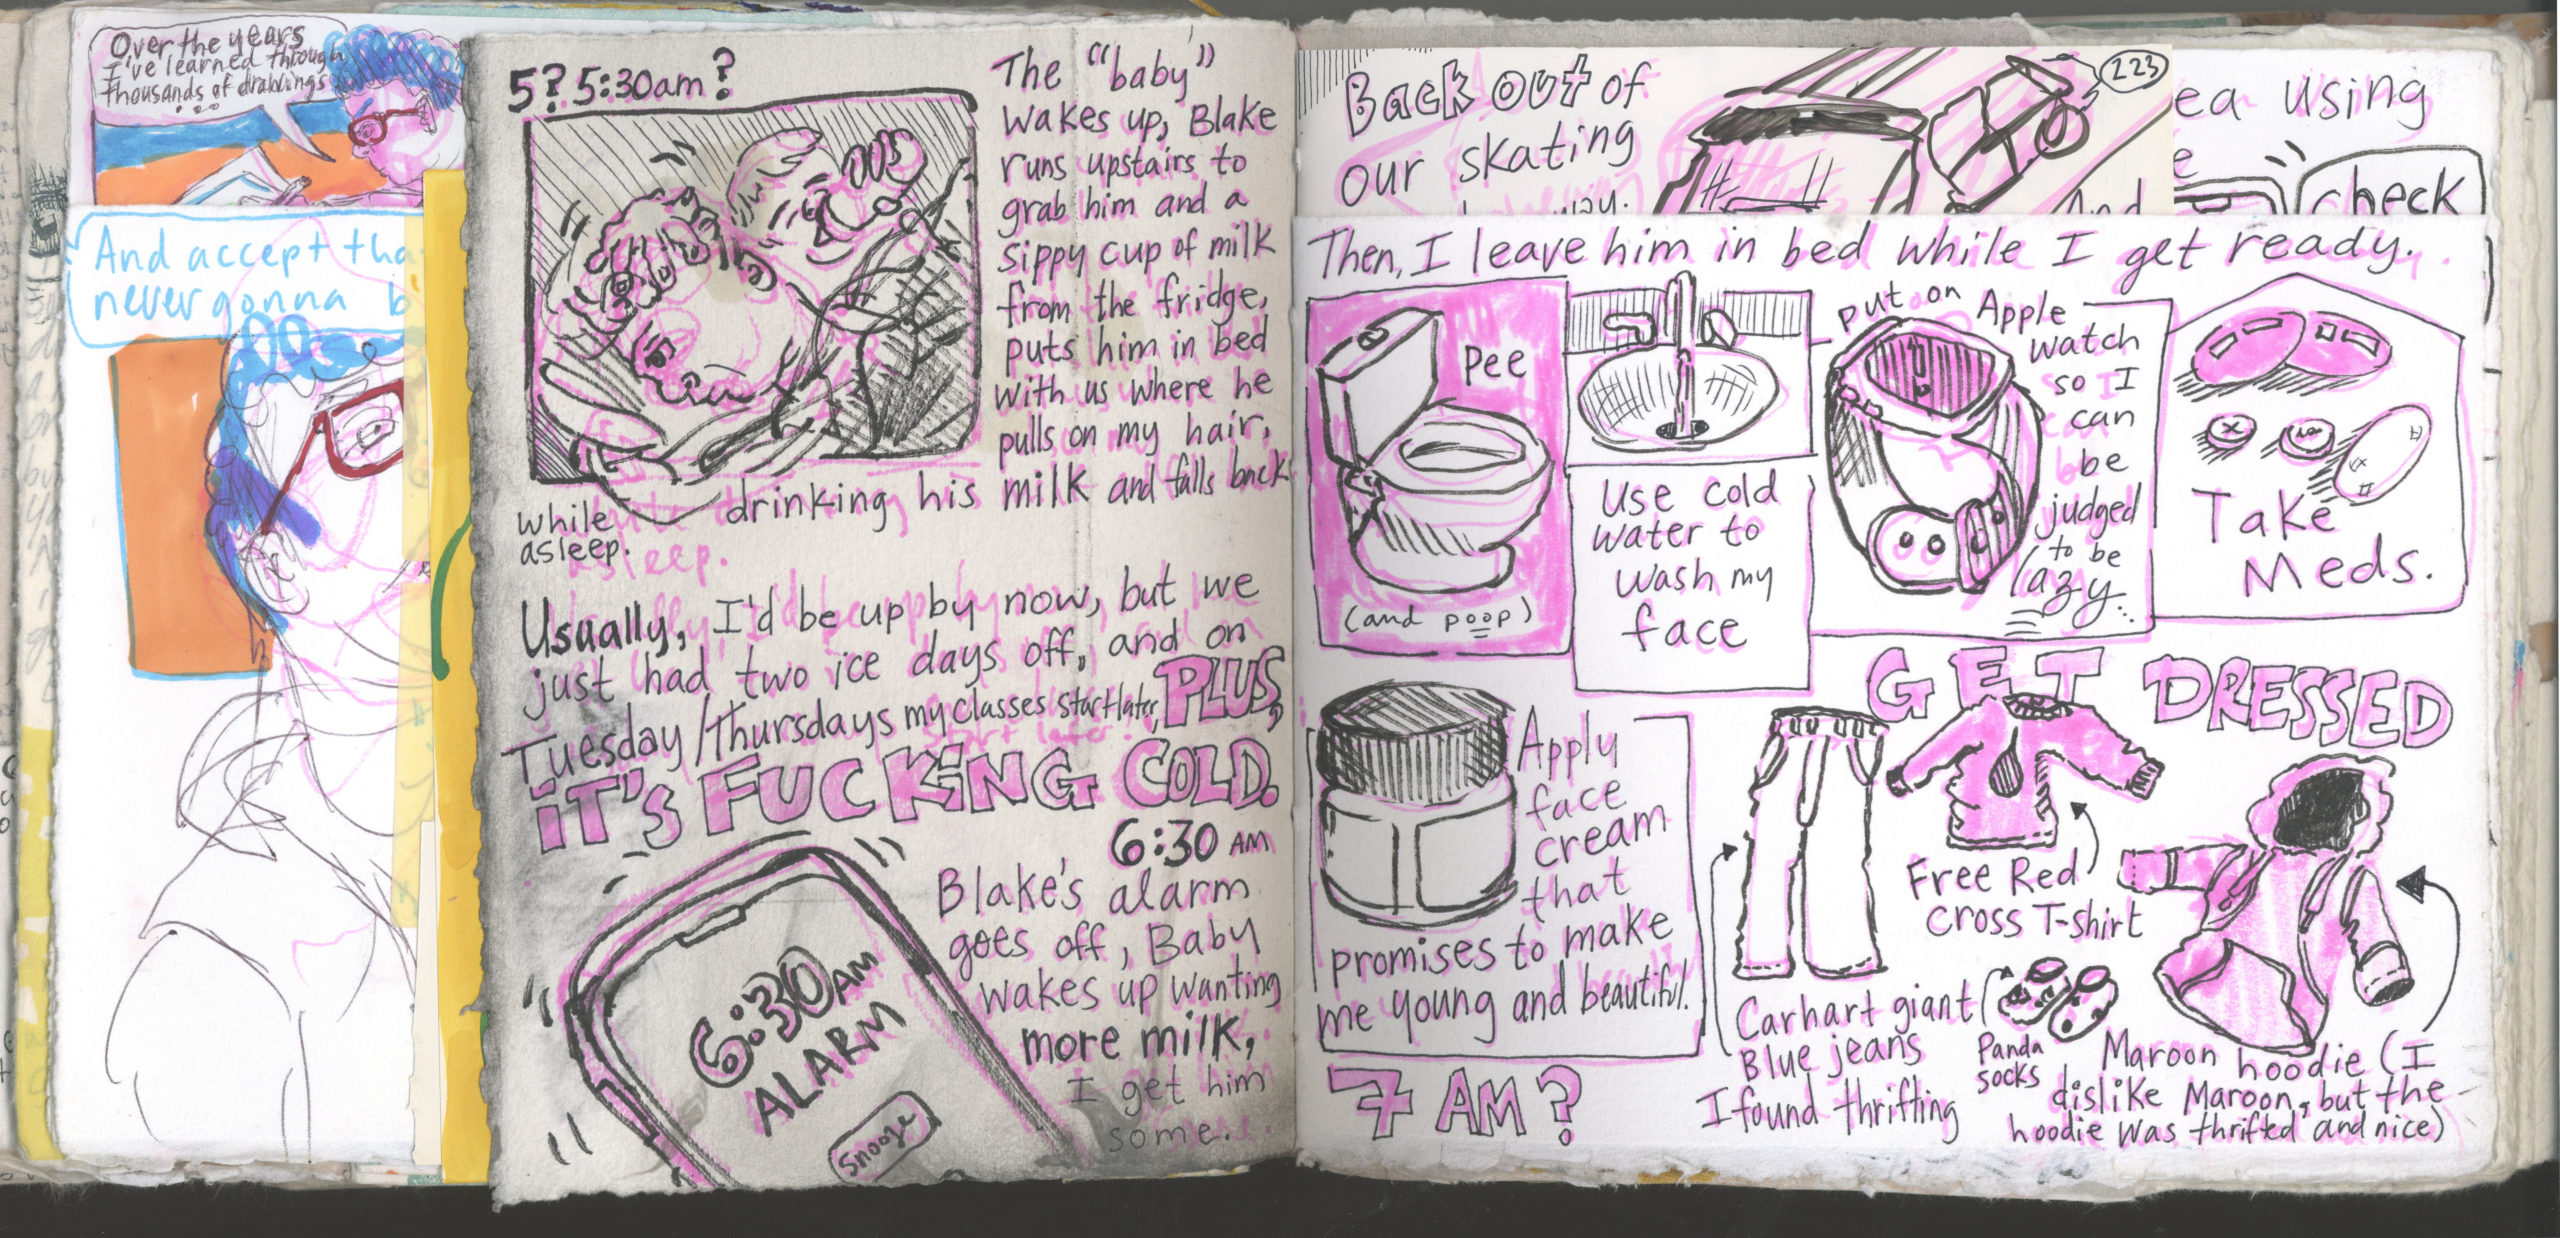 Over the years
I've learned through
thousands of drawings
...
And accept tha
never gonna b
5? 5:30am?
The "baby"
wakes up, Blake
runs upstairs to
grab him and a
sippy cup of milk
from the fridge,
puts him in bed
with us where he
pulls on my hair,
while drinking his milk and falls back
asleep.
Usually, I'd be up by now, but we
just had two ice days off, and on
Tuesday/Thursdays my classes start later, PLUS,
iT'S FUCKiNG COLD.
6:30 AM
Blake's alarm
goes off, Baby
wakes up wanting
more milk,
I get him
some.
6:30 AM
ALARM
Snooze
Back out of
our skating
way.
And
223
ea using
e
check
Then, I leave him in bed while I get ready.
Pee
(and poop)
Use cold
water to
wash my
face
put on Apple
watch
so I
can
be
judged
to be
lazy...
Take
Meds.
Apply
face
cream
that
promises to make
me young and beautiful.
GET DRESSED
Free Red
Cross T-shirt
Carhart giant
Blue jeans
I found thrifting
Panda
socks
Maroon hoodie (I
dislike Maroon, but the
hoodie was thrifted and nice)
7 AM?